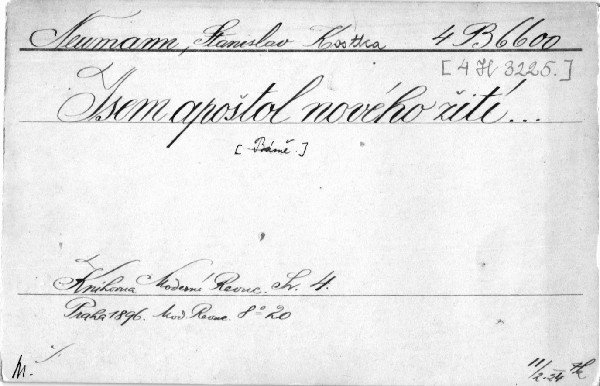 Neumann, Stanislav Kostka 4 B 6600
[4 H 3225.]
Jsem apoštol nového žití...
[Básně.]
Knihovna Moderní Revue. Sv. 4.
Praha 1896. Mod. Revue 8° 20
M.
11/2.24